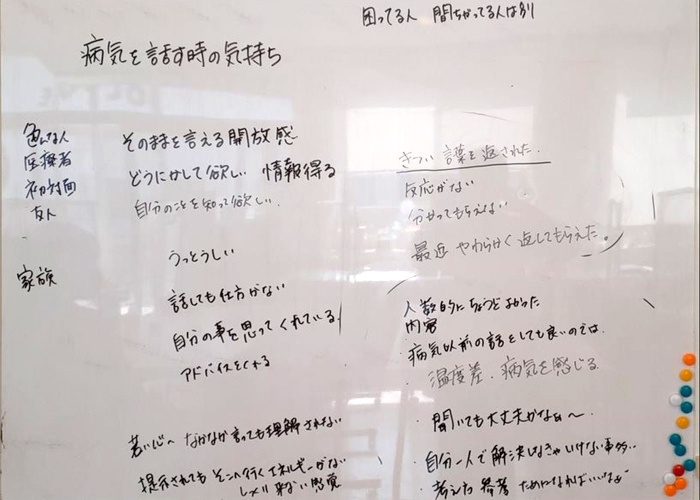 困ってる人 間ちがってる人は別
病気を話す時の気持ち
色んな人
医療者
初対面
友人
そのままを言える開放感
どうにかして欲しい 情報得る
自分のことを知って欲しい.
家族
うっとうしい
話しても仕方がない
自分の事を思ってくれている
アドバイスをくれる
なかなか言っても理解されない
提示されても そこへ行くエネルギーがない
感覚
きつい 言葉を返された.
反応がない
分かってもらえない
最近 やわらかく返してもらえた。
人数的にちょうどよかった
内容
・病気以前の話をしても良いのでは.
・温度差. 病気を感じる
・聞いても大丈夫かなぁ〜.
・自分一人で解決しなきゃいけない事多い
・考え方 参考 ためになればいいな